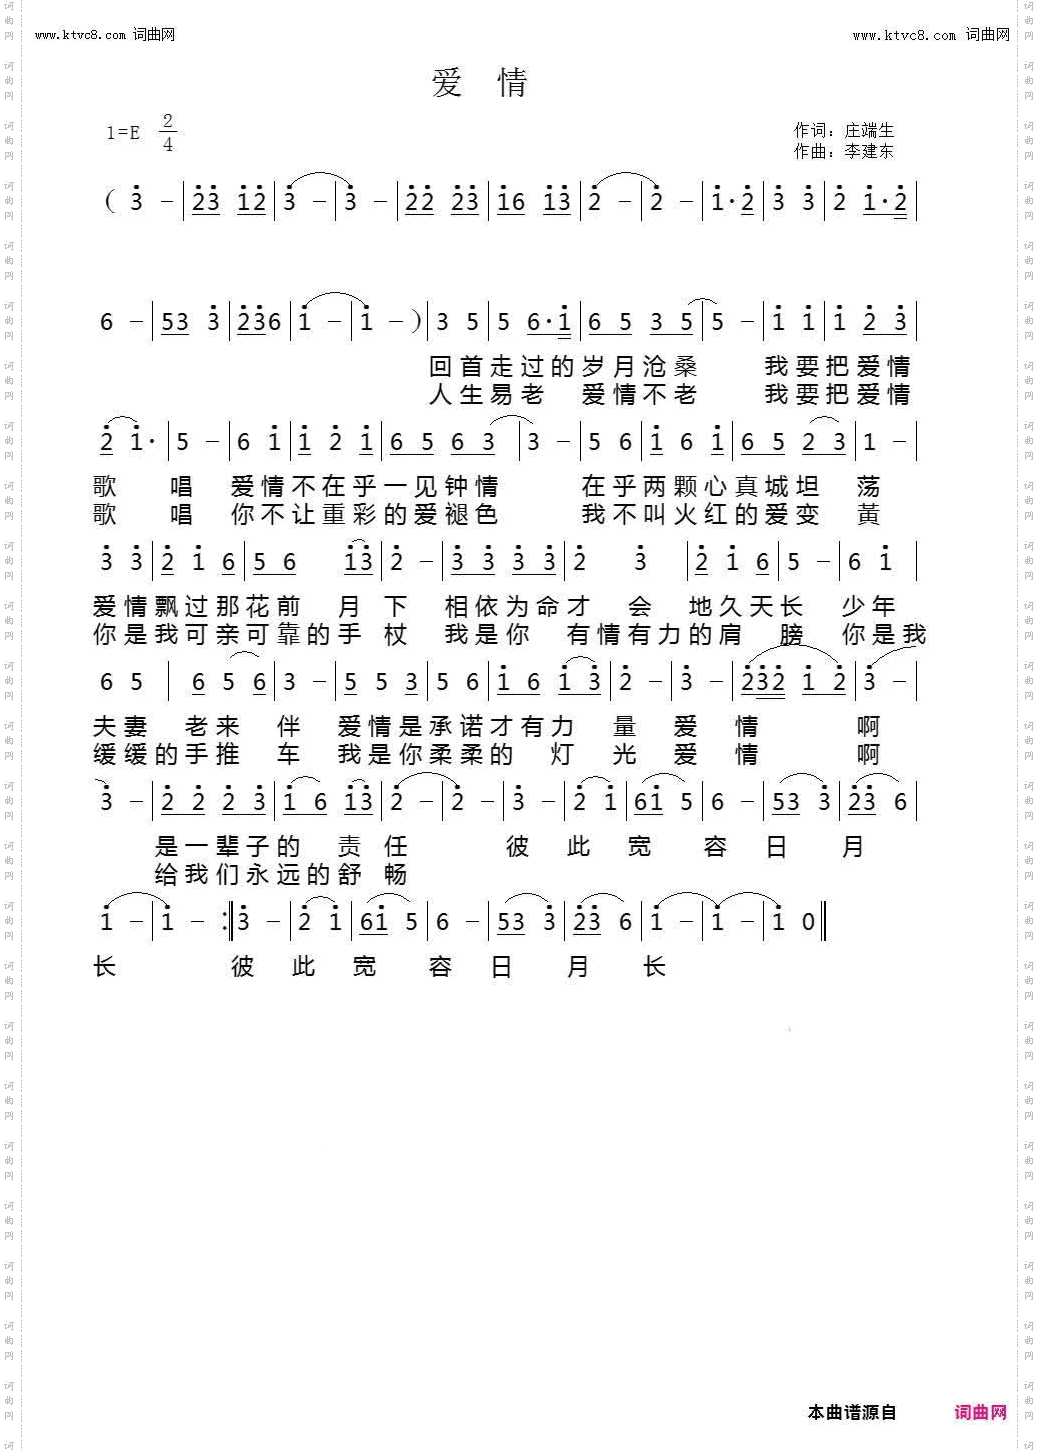 www.ktvc8.com 词曲网 www.ktvc8.com 词曲网
爱 情
1=E 2/4
作词：庄端生
作曲：李建东
( 3̇ - | 2̇3̇ 1̇2̇ | 3̇ - | 3̇ - | 2̇2̇ 2̇3̇ | 1̇6 1̇3̇ | 2̇ - | 2̇ - | 1̇·2̇ | 3̇ 3̇ | 2̇ 1̇·2̇ |
6 - | 53 3̇ | 2̇3̇6 | 1̇ - | 1̇ - ) | 3 5 | 5 6·1̇ | 6 5 3 5 | 5 - | 1̇ 1̇ | 1̇ 2̇ 3̇ |
回首走过的岁月沧桑 我要把爱情
人生易老 爱情不老 我要把爱情
2̇ 1̇· | 5 - | 6 1̇ | 1̇ 2̇ 1̇ | 6 5 6 3 | 3 - | 5 6 | 1̇ 6 1̇ | 6 5 2 3 | 1 - |
歌 唱 爱情不在乎一见钟情 在乎两颗心真城坦 荡
歌 唱 你不让重彩的爱褪色 我不叫火红的爱变 黃
3̇ 3̇ | 2̇ 1̇ 6 | 5 6 1̇3̇ | 2̇ - | 3̇ 3̇ 3̇ 3̇ | 2̇ 3̇ | 2̇ 1̇ 6 | 5 - | 6 1̇ |
爱情飘过那花前 月 下 相依为命才 会 地久天长 少年
你是我可亲可靠的手 杖 我是你 有情有力的肩 膀 你是我
6 5 | 6 5 6 | 3 - | 5 5 3 | 5 6 | 1̇ 6 1̇ 3̇ | 2̇ - | 3̇ - | 2̇3̇2̇ 1̇ 2̇ | 3̇ -
夫妻 老来 伴 爱情是承诺才有力 量 爱 情 啊
缓缓的手推 车 我是你柔柔的 灯 光 爱 情 啊
3̇ - | 2̇ 2̇ 2̇ 3̇ | 1̇ 6 1̇3̇ | 2̇ - | 2̇ - | 3̇ - | 2̇ 1̇ | 61̇ 5 | 6 - | 53 3̇ | 2̇3̇ 6 |
是一辈子的 责 任 彼 此 宽 容 日 月
给我们永远的舒 畅
1̇ - | 1̇ - :‖ 3̇ - | 2̇ 1̇ | 61̇ 5 | 6 - | 53 3̇ | 2̇3̇ 6 | 1̇ - | 1̇ - | 1̇ 0 ‖
长 彼 此 宽 容 日 月 长
本曲谱源自 词曲网